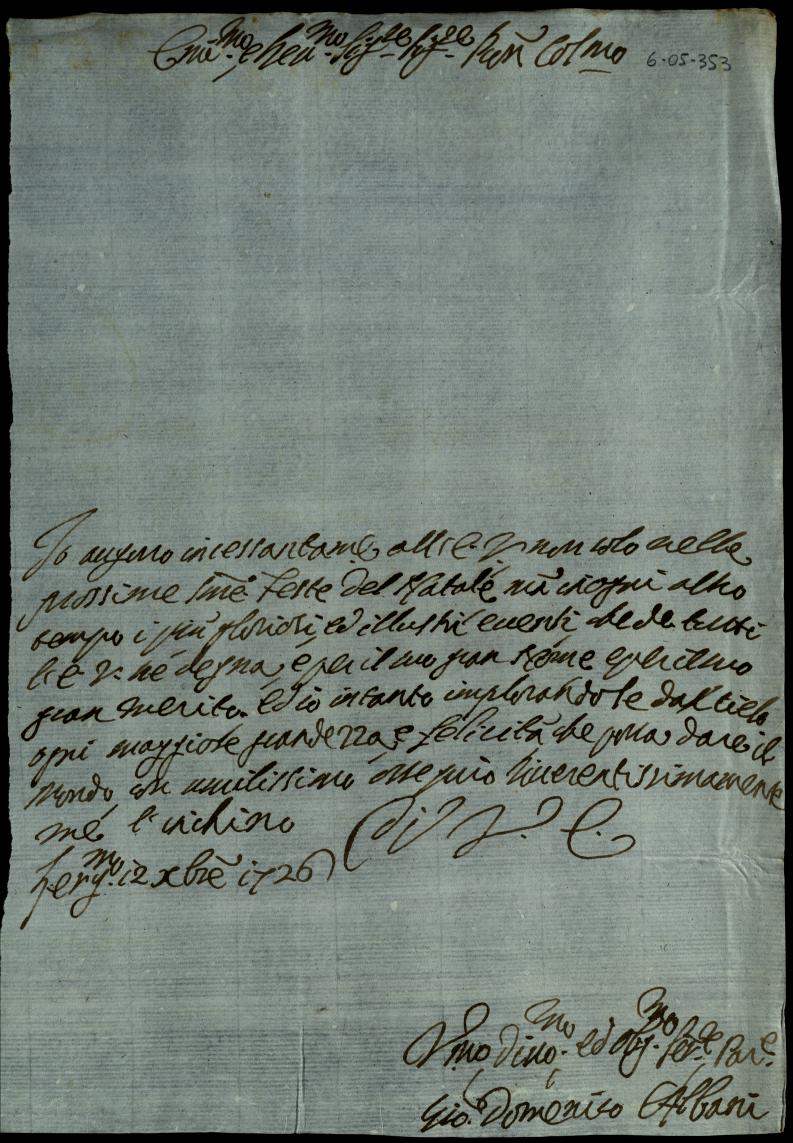 Emin.mo e Reu.mo Sig.re Sig.re Pron Col.mo 6-05-353
Io auguro incessantame. all' E. V. non solo nelle
prossime Sme. Feste del Natale, mà in ogni altro
tempo i più gloriosi, ed illustri euenti che de tutti
l'E. V. ne' degna, e per il suo gran Nome e per il suo
gran merito. Ed io intanto implorandole dal Cielo
ogni maggiore grandezza, e felicità che possa dare il
Mondo, con umilissimo ossequio riuerentissimamente
me l'inchino Di V. E.
Berg.mo 12 Xbre 1726
Vmo Diuo.mo ed obg.mo Ser.e Par.e
Gio. Domenico Albani